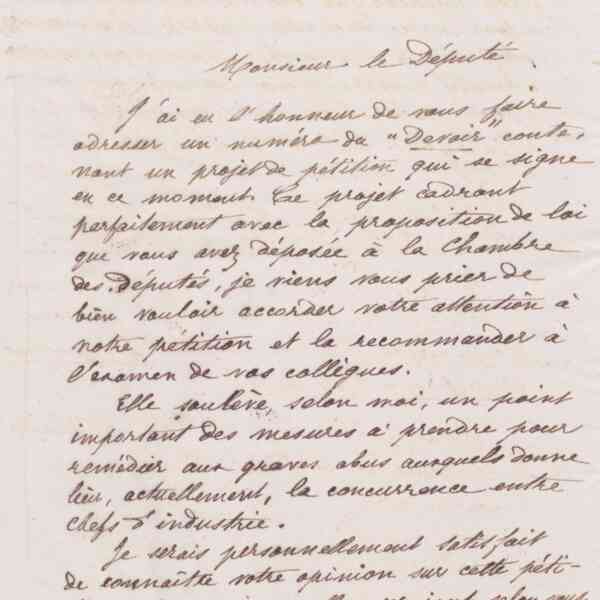 Monsieur le Député
J'ai eu l'honneur de vous faire
adresser un numéro du "Devoir" conte-
nant un projet de pétition qui se signe
en ce moment. Ce projet cadrant
parfaitement avec la proposition de loi
que vous avez déposée à la Chambre
des députés, je viens vous prier de
bien vouloir accorder votre attention à
notre pétition et la recommander à
l'examen de vos collègues.
Elle soulève, selon moi, un point
important des mesures à prendre pour
remédier aux graves abus auxquels donne
lieu, actuellement, la concurrence entre
chefs d'industrie.
Je serais personnellement satisfait
de connaître votre opinion sur cette péti-